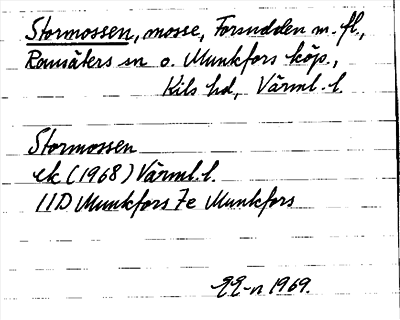 Stormossen, mosse, Forsudden m. fl.,
Ransäters sn o. Munkfors köp.,
Kils hd, Värml. l.
Stormossen
ek (1968) Värml. l.
11D Munkfors 7e Munkfors
1969.